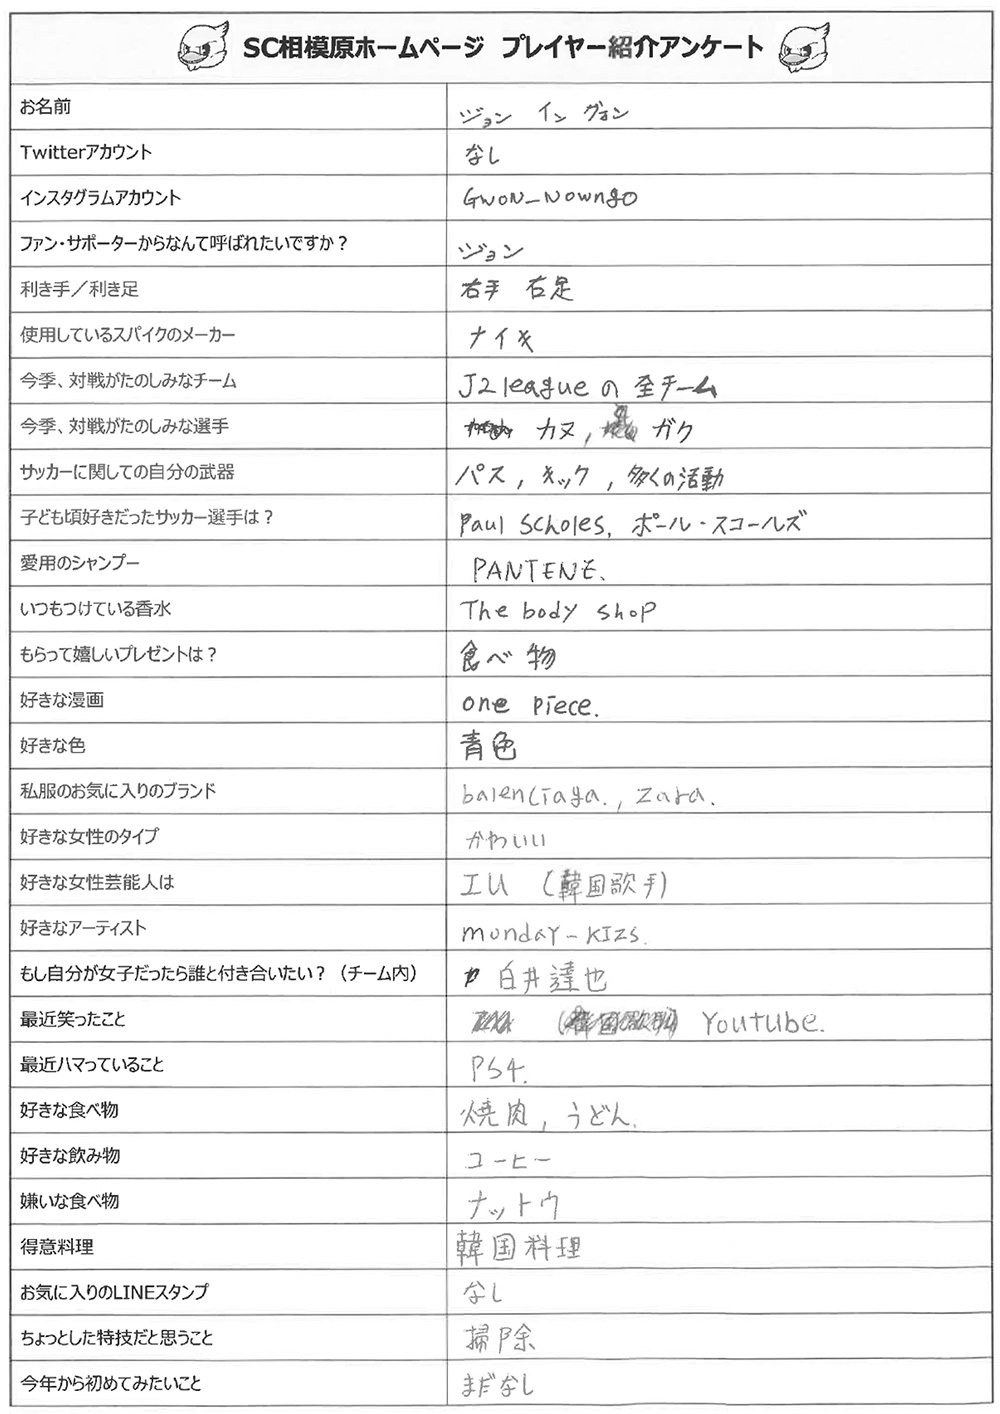 SC相模原ホームページ プレイヤー紹介アンケート
お名前 ジョン イン グォン
Twitterアカウント なし
インスタグラムアカウント GWON_NOWngo
ファン・サポーターからなんて呼ばれたいですか？ ジョン
利き手／利き足 右手 右足
使用しているスパイクのメーカー ナイキ
今季、対戦がたのしみなチーム J2 league の 全チーム
今季、対戦がたのしみな選手 カヌ, ガク
サッカーに関しての自分の武器 パス, キック, 多くの活動
子ども頃好きだったサッカー選手は？ Paul Scholes, ポール・スコールズ
愛用のシャンプー PANTENE.
いつもつけている香水 The body shop
もらって嬉しいプレゼントは？ 食べ物
好きな漫画 one piece.
好きな色 青色
私服のお気に入りのブランド balenciaga., zara.
好きな女性のタイプ かわいい
好きな女性芸能人は IU (韓国歌手)
好きなアーティスト monday-KIZS.
もし自分が女子だったら誰と付き合いたい？（チーム内） 白井達也
最近笑ったこと Youtube.
最近ハマっていること PS4.
好きな食べ物 焼肉, うどん.
好きな飲み物 コーヒー
嫌いな食べ物 ナットウ
得意料理 韓国料理
お気に入りのLINEスタンプ なし
ちょっとした特技だと思うこと 掃除
今年から初めてみたいこと まだなし